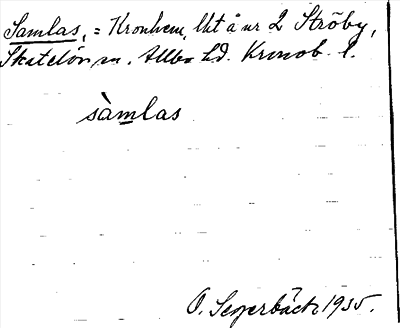 Samlas, = Kronhem, lht å nr 2 Ströby,
Skatelöv sn. Allbo hd. Kronob. l.
sàmlas
O. Segerbäck 1935.